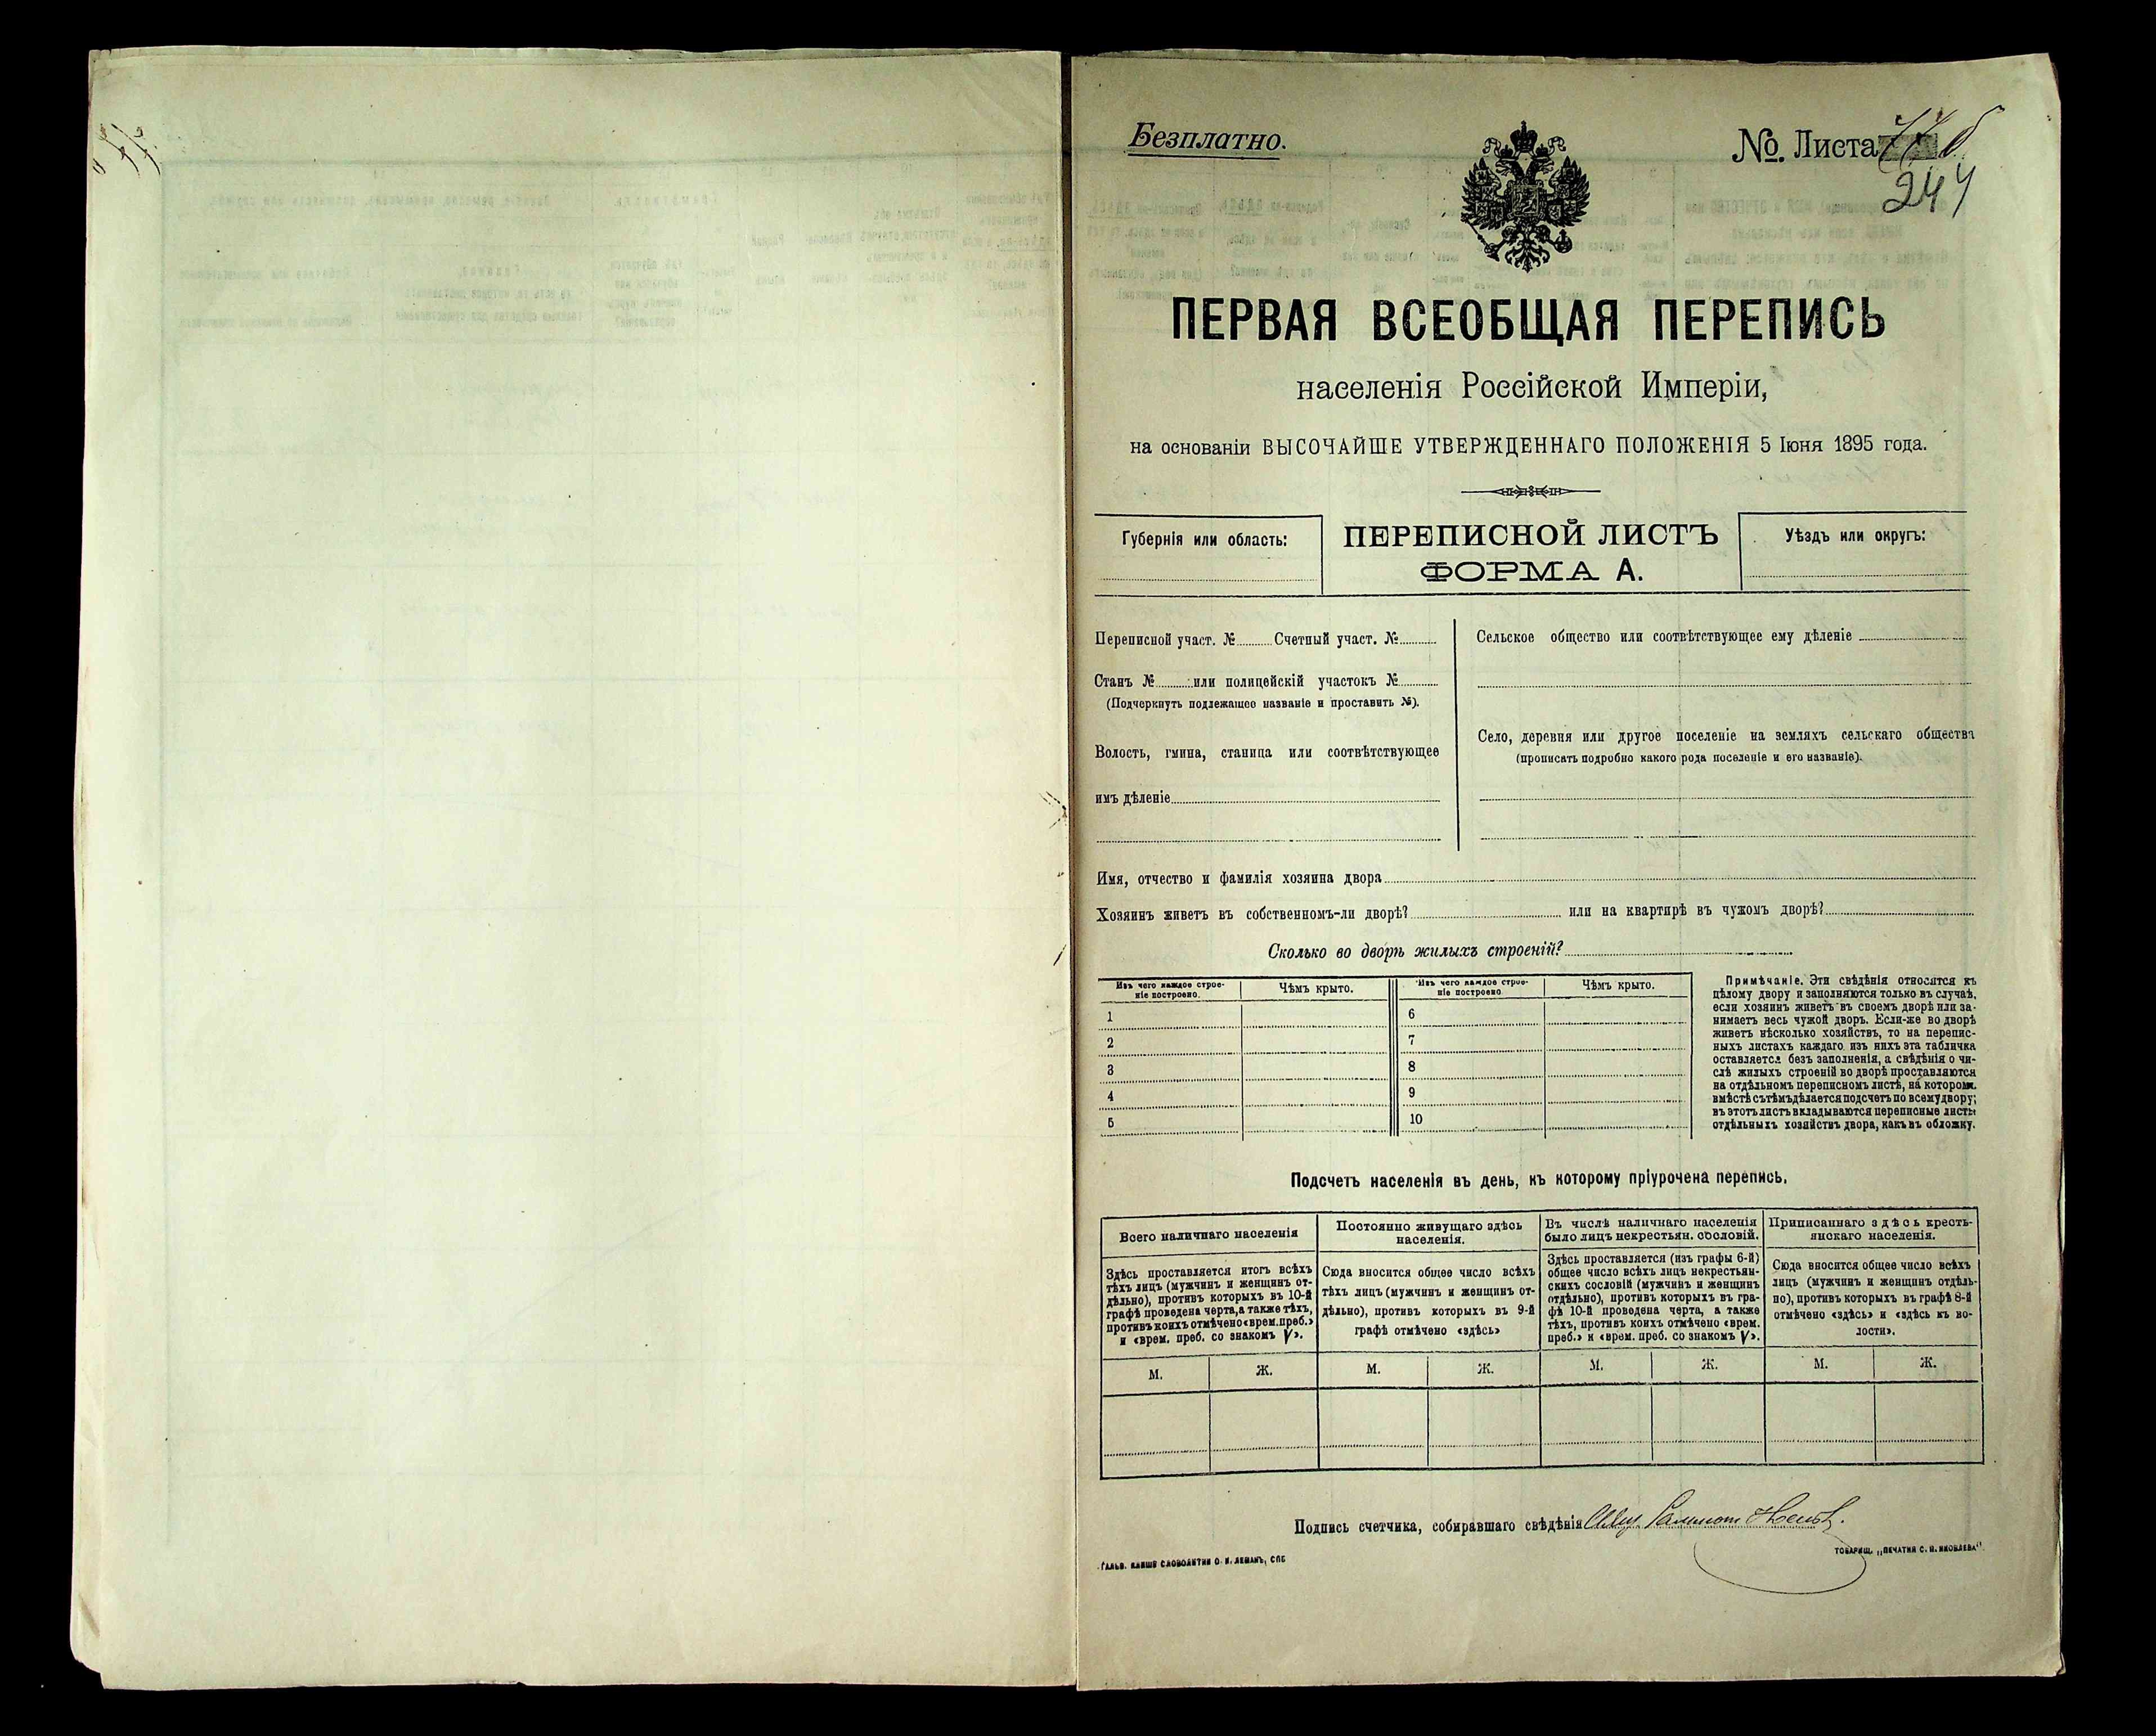 Безплатно.
№. Листа
244
ПЕРВАЯ ВСЕОБЩАЯ ПЕРЕПИСЬ
населенія Россійской Имперіи,
на основаніи ВЫСОЧАЙШЕ УТВЕРЖДЕННАГО ПОЛОЖЕНІЯ 5 Іюня 1895 года.
Губернія или область:
ПЕРЕПИСНОЙ ЛИСТЪ
ФОРМА А.
Уѣздъ или округъ:
Переписной участ. № Счетный участ. №
Станъ № или полицейскій участокъ №
(Подчеркнуть подлежащее названіе и проставить №).
Волость, гмина, станица или соотвѣтствующее
имъ дѣленіе
Сельское общество или соотвѣтствующее ему дѣленіе
Село, деревня или другое поселеніе на земляхъ сельскаго общества
(прописать подробно какого рода поселеніе и его названіе).
Имя, отчество и фамилія хозяина двора
Хозяинъ живетъ въ собственномъ-ли дворѣ? или на квартирѣ въ чужомъ дворѣ?
Сколько во дворѣ жилыхъ строеній?
Изъ чего каждое строе-
ніе построено.
Чѣмъ крыто.
Изъ чего каждое строе-
ніе построено
Чѣмъ крыто.
1
2
3
4
5
6
7
8
9
10
Примѣчаніе. Эти свѣдѣнія относятся къ
цѣлому двору и заполняются только въ случаѣ,
если хозяинъ живетъ въ своемъ дворѣ или за-
нимаетъ весь чужой дворъ. Если-же во дворѣ
живетъ нѣсколько хозяйствъ, то на перепис-
ныхъ листахъ каждаго изъ нихъ эта табличка
оставляется безъ заполненія, а свѣдѣнія о чи-
слѣ жилыхъ строеній во дворѣ проставляются
на отдѣльномъ переписномъ листѣ, на которомъ
вмѣстѣ съ тѣмъ дѣлается подсчетъ по всему двору;
въ этотъ листъ вкладываются переписные листы
отдѣльныхъ хозяйствъ двора, какъ въ обложку.
Подсчетъ населенія въ день, къ которому пріурочена перепись.
Всего наличнаго населенія
Здѣсь проставляется итогъ всѣхъ
тѣхъ лицъ (мужчинъ и женщинъ от-
дѣльно), противъ которыхъ въ 10-й
графѣ проведена черта, а также тѣхъ,
противъ коихъ отмѣчено «врем. преб.»
и «врем. преб. со знакомъ V».
Постоянно живущаго здѣсь
населенія.
Сюда вносится общее число всѣхъ
тѣхъ лицъ (мужчинъ и женщинъ от-
дѣльно), противъ которыхъ въ 9-й
графѣ отмѣчено «здѣсь»
Въ числѣ наличнаго населенія
было лицъ некрестьян. сословій.
Здѣсь проставляется (изъ графы 6-й)
общее число всѣхъ лицъ некрестьян-
скихъ сословій (мужчинъ и женщинъ
отдѣльно), противъ которыхъ въ гра-
фѣ 10-й проведена черта, а также
тѣхъ, противъ коихъ отмѣчено «врем.
преб.» и «врем. преб. со знакомъ V».
Приписаннаго здѣсь кресть-
янскаго населенія.
Сюда вносится общее число всѣхъ
лицъ (мужчинъ и женщинъ отдѣль-
но), противъ которыхъ въ графѣ 8-й
отмѣчено «здѣсь» и «здѣсь къ во-
лости».
М. Ж. М. Ж. М. Ж. М. Ж.
Подпись счетчика, собиравшаго свѣдѣнія
Гальв. клише словолитни О. И. Леманъ, СПБ
Товарищ. „Печатня С. П. Яковлева"